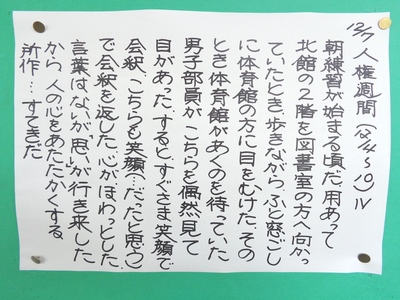 12/7 人権週間(12/4〜10)Ⅳ
朝練習が始まる頃だ。用あって
北館の2階を図書室の方へ向かっ
ていたとき、歩きながら、ふと窓ごし
に体育館の方に目をむけた。その
とき体育館があくのを待っていた
男子部員が、こちらを偶然見て
目があった。すると、すぐさま笑顔で
会釈、こちらも笑顔…だったと思う)
で会釈を返した。心がほわっとした。
言葉はないが、思いが行き来した。
から、人の心をあたたかくする。
所作…すてきだ